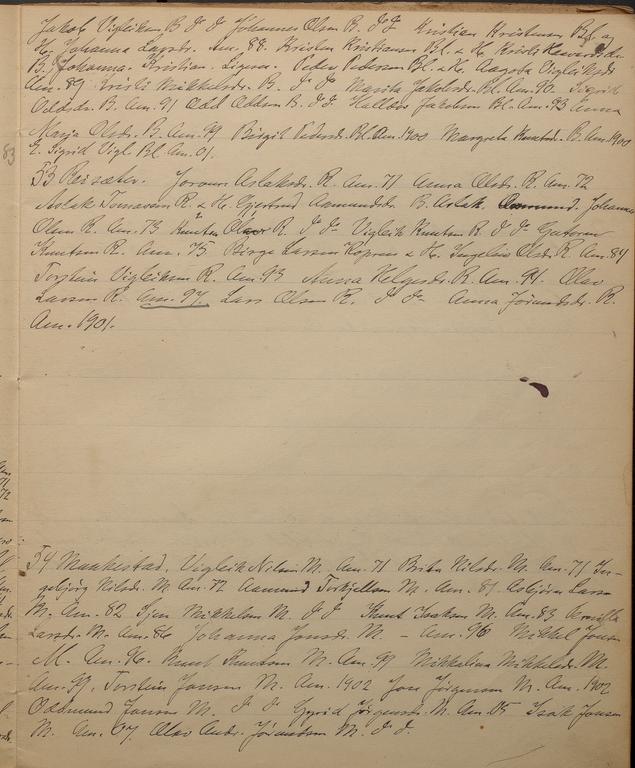 Jakob Vigleiksen B. I I Johannes Olsen B. I I Kristian Kristensen Bl. og
H. Johanna Larsdtr. Am. 88. Kristen Kristiansen Bl. & H. Kristi
B., Johanna. Kristian. Peder Pedersen Bl. & H. Aagota Vigleiksdr
Am. 89 Kristi Mikkelsdr. B. I I Marita Jakobsdr. Bl. Am. 90. Sigrid
Oddsdr. B. Am. 91 Odd Oddsen B. I I Hallvor Jakobsen Bl. Am. 93 Anna
Marja Olsdr. B. Am. 99 Birgit Pedersd. Bl. Am. 1900 Margreta Knutsd. B. Am. 1900
Sigrid Vigl. Bl. Am. 01.
83
53 Reisæter. Jorunn Aslaksdr. R. Am. 71 Anna Olsdr. R. Am. 72
Aslak Tomassen R. & H. Gjertrud Aamundsdr. B. Aslak. Aamund. Johannes
Olsen R. Am. 73 Knut R. I I Vigleik Knutsen R. I I Guttorm
Knutsen R. Am. 75 Birge Larsen & H. Ingeleiv Olsd. R. Am. 84
Torstein Vigleiksen R. Am. 93 Anna Helgesdr. R. Am. 94. Olav
Larsen R. Am. 97. Lars Olsen R. I I Anna Jørundsdr. R.
Am. 1901.
54 Maakestad. Vigleik Nilsen M. Am. 71 Brita Nilsdr. M. Am. 71 In-
gebjørg Nilsdr. M. Am. 72 Aamund Torkjellsen M. Am. 81 Asbjørn Larsen
M. Am. 82 Mikkelsen M. I I Knut Isaksen M. Am. 83
Larsdr. M. Am. 86 Johanna Jonsdr. M. - Am. 96 Mikkel Jonsen
M. Am. 96. Knut Knutsen M. Am. 99 Mikkelina Mikkelsdr. M.
Am. 99. Torstein Jonsen M. Am. 1902 Jon Jørgensen M. Am. 1902
Oddmund Jonsen M. I I Gyrid Jørgensdr. M. Am. 05 Isak Jonsen
M. Am. 07 Olav Andr. Jørundsen M. I I.